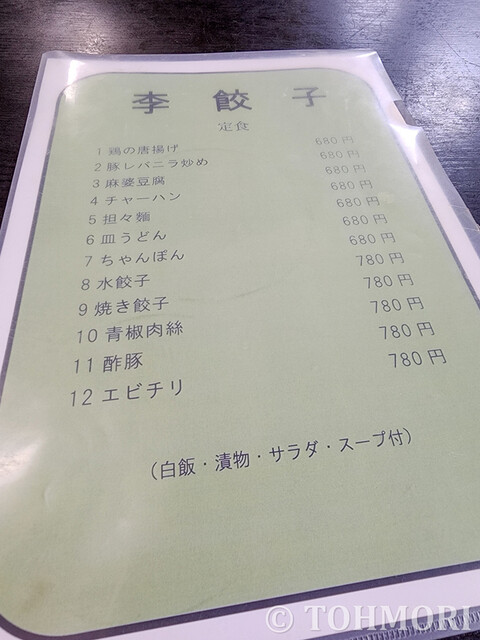 李 餃 子
定食
1 鶏の唐揚げ 680円
2 豚レバニラ炒め 680円
3 麻婆豆腐 680円
4 チャーハン 680円
5 担々麺 680円
6 皿うどん 680円
7 ちゃんぽん 680円
8 水餃子 780円
9 焼き餃子 780円
10 青椒肉絲 780円
11 酢豚 780円
12 エビチリ 780円
（白飯・漬物・サラダ・スープ付）
© TOHMORI